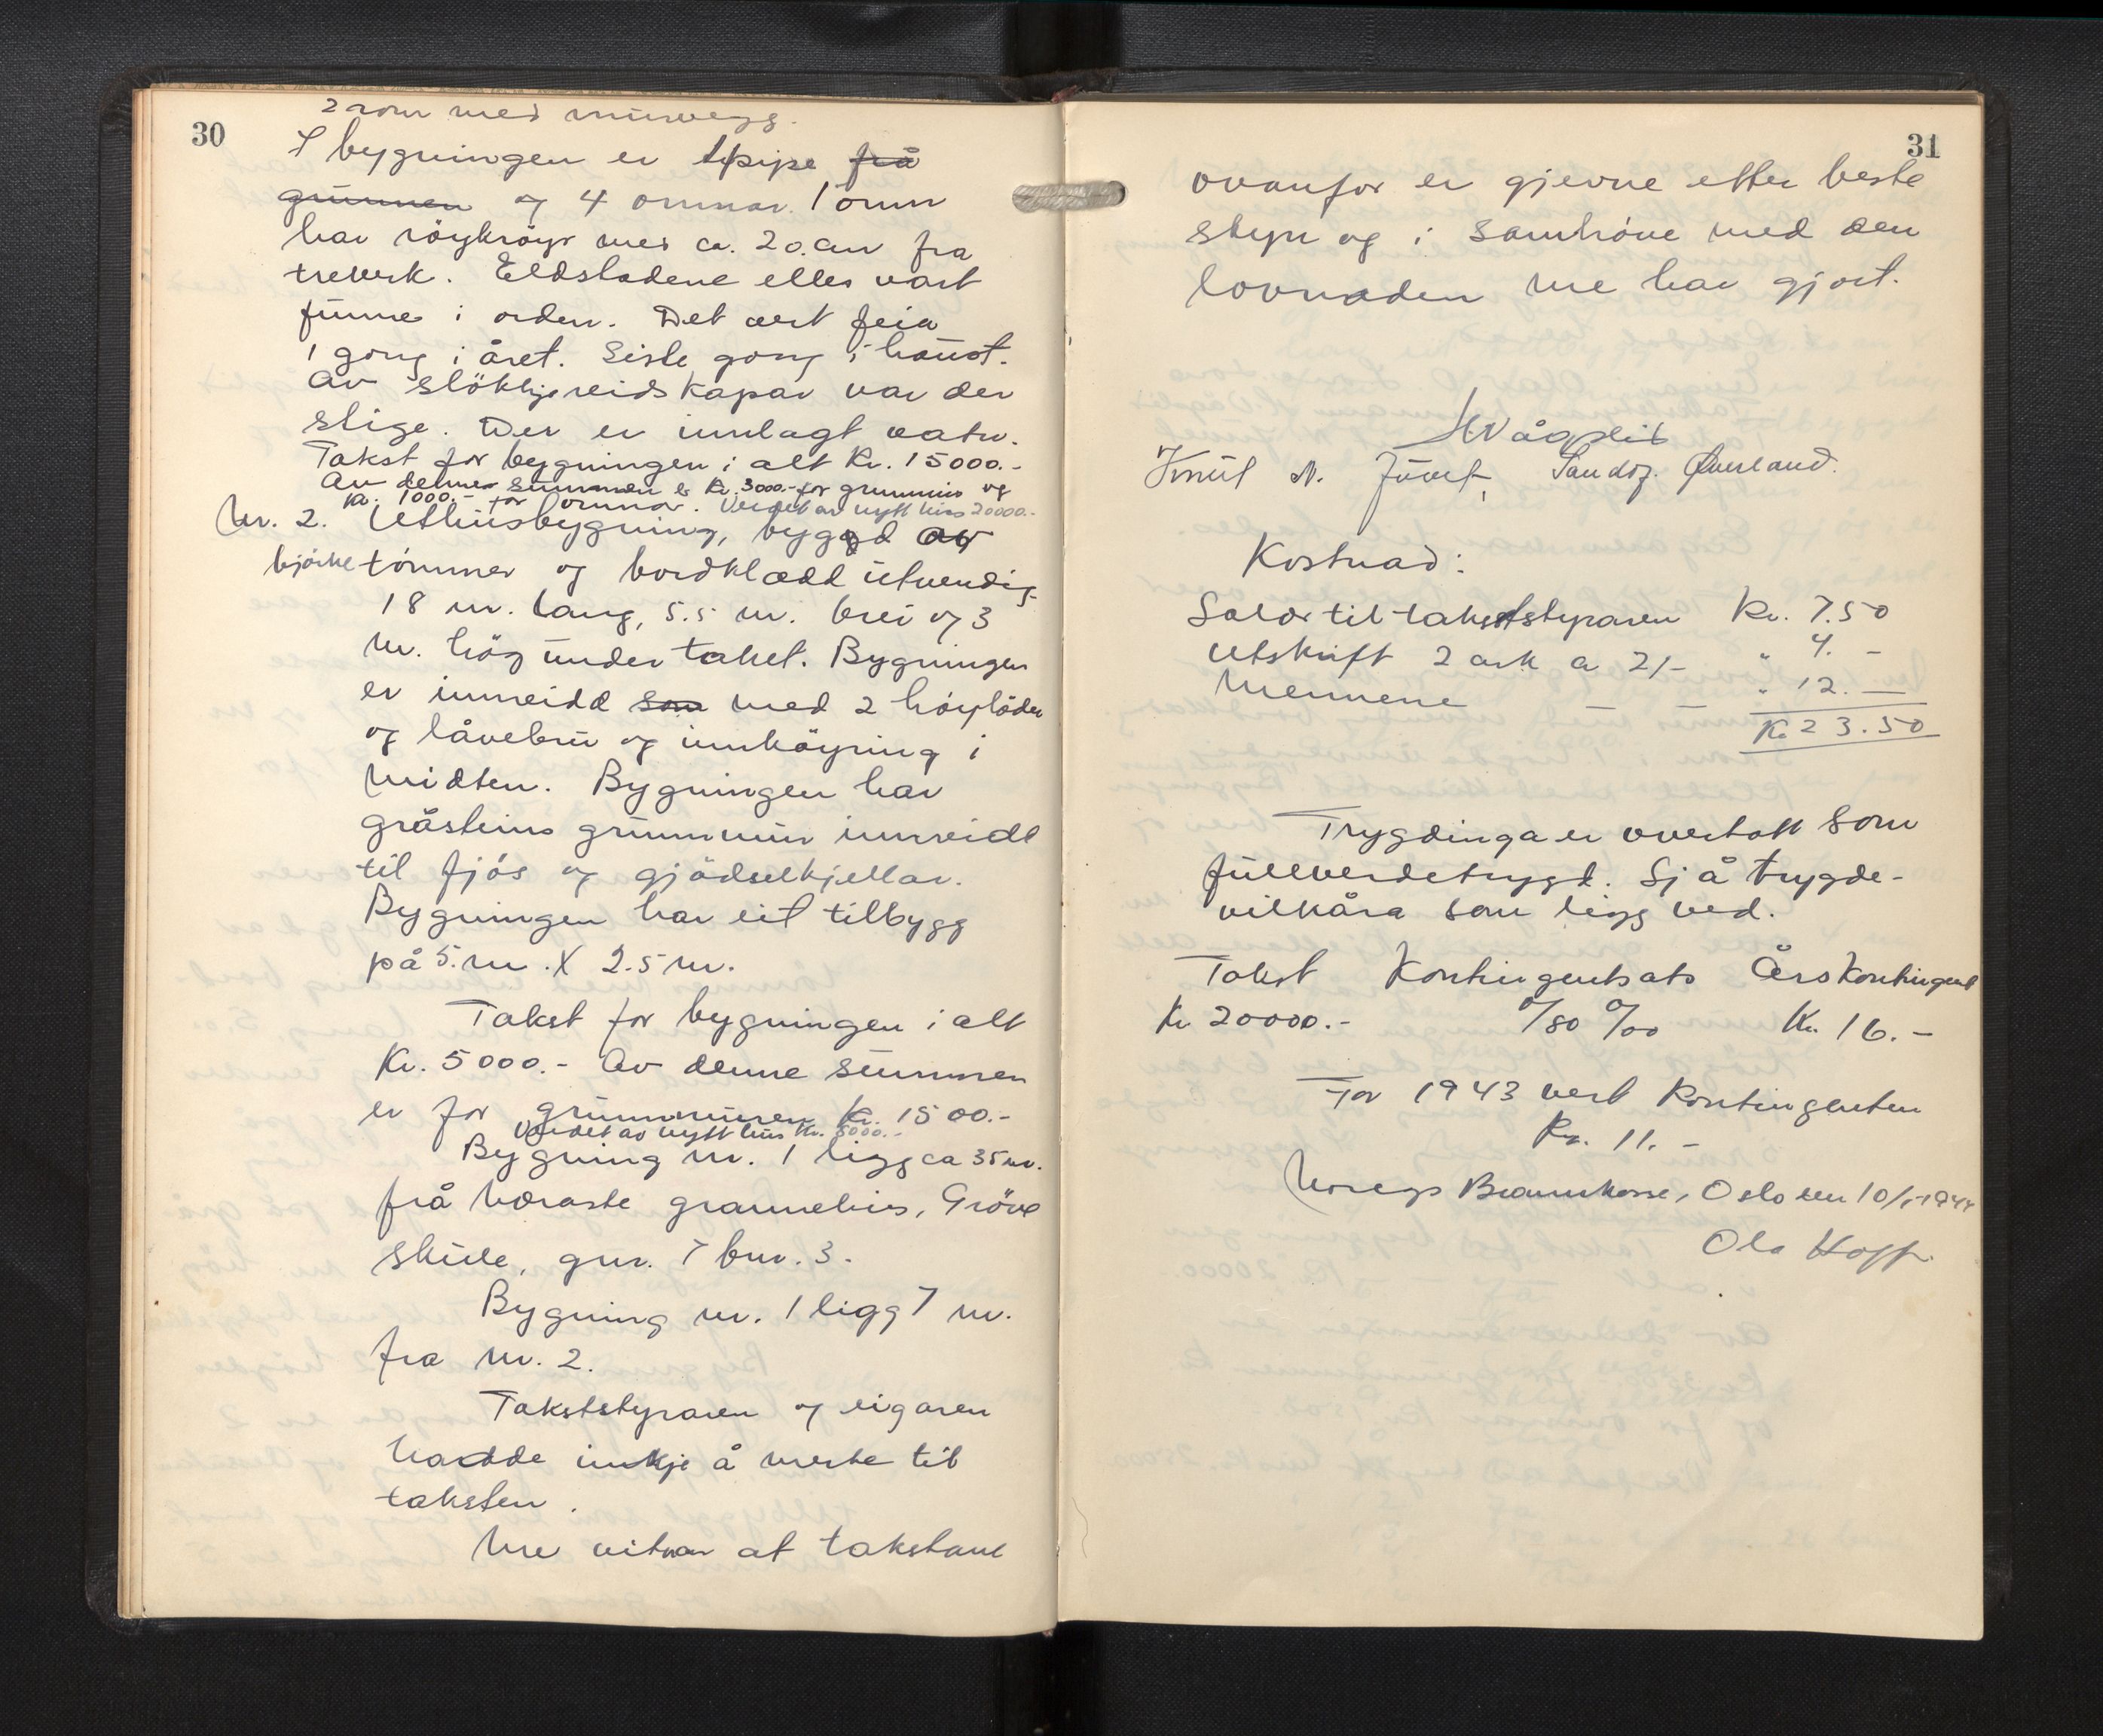 30
2 rom med murvegg.
I bygningen er 1 pipe frå
grunnen og 4 omnar. 1 omn
har röykröyr med ca. 20. cm fra
treverk. Eldstadene elles vart
funne i orden. Det vert feia
1 gong i året. Siste gong i haust.
Av slökkjereidskapar var der
stige. Der er innlagt vatn.
Takst for bygningen i alt Kr. 15000.-
Av denne summen er Kr. 3000.- for grunnmur og
Kr. 1000.- for omnar. Verdet av nytt hus 20000.-
Nr. 2. Uthusbygning, bygd av
bjørketömmer og bordklædd utvendig
18 m. lang, 5.5 m. brei og 3
m. hög under taket. Bygningen
er innreidd som med 2 höylöder
og låvebru og innköyring i
midten. Bygningen har
gråsteins grunnmur innreidt
til fjös og gjödselkjellar.
Bygningen har eit tilbygg
på 5. m. X 2.5 m.
Takst for bygningen i alt
Kr. 5000.- Av denne summen
er for grunnmuren Kr. 1500.-
Verdet av nytt hus Kr. 8000.-
Bygning nr. 1 ligg ca 35 m.
frå næraste grannehus, Gröve
skule, gnr. 7 bnr. 3.
Bygning nr. 1 ligg 7 m.
fra nr. 2.
Takststyraren og eigaren
hadde inkje å merke til
taksten.
Me vitnar at takstane
31
ovanfor er gjevne etter beste
skjyn og i samhöve med den
lovnaden me har gjort.
H Vågslid
Knut N. Juvet, Sandof. Øverland.
Kostnad:
Salær til takststyraren Kr. 7.50
Utskrift 2 ark a 2/- " 4. -
Mennene — — " 12. —
Kr 23.50
Trygdinga er overtatt som
fullverdetrygd. Sjå trygde-
vilkåra som ligg ved.
Takst Kontingentsats Årskontingent
Kr 20000.- 0/80 0/00 Kr. 16.-
For 1943 vert kontingenten
Kr. 11. -
Noregs Brannkasse, Oslo den 10/1-1944
Ola Hoff